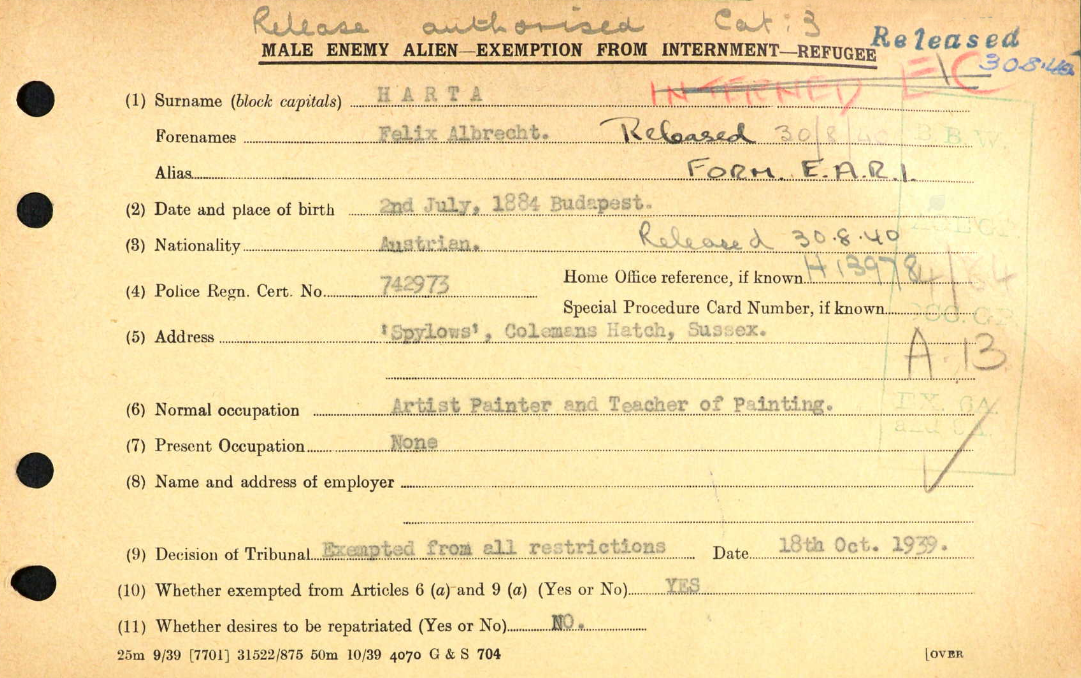 Release authorised Cat: 3
MALE ENEMY ALIEN—EXEMPTION FROM INTERNMENT—REFUGEE
Released
30.8.40
INTERNED EC
(1) Surname (block capitals) HARTA
Forenames Felix Albrecht. Released 30/8/40
B.B.W.
Alias FORM. E.A.R.1.
(2) Date and place of birth 2nd July, 1884 Budapest.
(3) Nationality Austrian. Released 30.8.40
Home Office reference, if known H 13978
(4) Police Regn. Cert. No. 742973
Special Procedure Card Number, if known
(5) Address 'Spylows', Colemans Hatch, Sussex.
A.13
(6) Normal occupation Artist Painter and Teacher of Painting.
(7) Present Occupation None
(8) Name and address of employer
(9) Decision of Tribunal Exempted from all restrictions Date 18th Oct. 1939.
(10) Whether exempted from Articles 6 (a) and 9 (a) (Yes or No) YES
(11) Whether desires to be repatriated (Yes or No) NO.
25m 9/39 [7701] 31522/875 50m 10/39 4070 G & S 704 [OVER